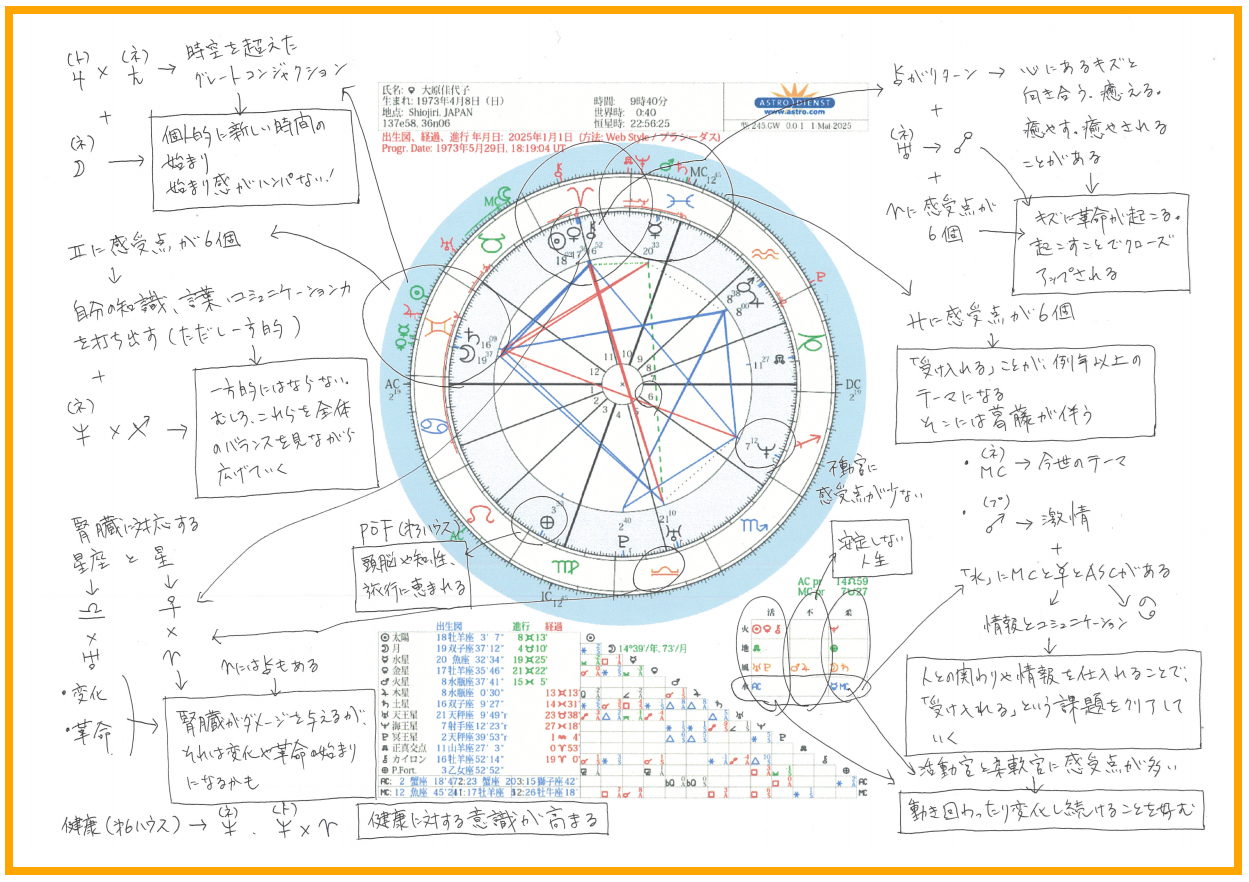 (ト) (ネ)
♃ × ♄ → 時空を超えた
グレートコンジャクション
+
(ネ)
☽ →
個人的に新しい時間の
始まり
始まり感がハンパない!
♊に感受点が6個
↓
自分の知識、言葉、コミュニケーション力
を打ち出す(ただし一方的)
+
(ネ)
♆ × ♐ →
一方的にはならない。
むしろ、これらを全体
のバランスを見ながら
広げていく
腎臓に対応する
星座 と 星
↓ ↓
♎ ♀
× ×
♅ ♈
♈には⚷もある
・変化
・革命
腎臓がダメージを与えるが、
それは変化や革命の始まり
になるかも
健康(オ6ハウス) → (ネ)♆ . (ト)♆ × ♈
健康に対する意識が高まる
氏名: ♀ 大原佳代子
生まれ: 1973年4月8日(日)
地点: Shiojiri, JAPAN
137e58, 36n06
時間: 9時40分
世界時: 0:40
恒星時: 22:56:25
ASTRO DIENST
www.astro.com
型: 245.GW 0.0-1 1-Mai 2025
出生図、経過、進行 年月日: 2025年1月1日 (方法: Web Style / プラシーダス)
Progr. Date: 1973年5月29日, 18:19:04 UT
MC
AC
DC
IC
POF(オ3ハウス)
頭脳や知性、
旅行に恵まれる
不動宮に
感受点が少ない
安定しない
人生
⚷がリターン → 心にあるキズと
向き合う、癒える。
癒やす。癒やされる
ことがある
+
(ネ)
♅ → ☍
+
♈に感受点が
6個 →
キズに革命が起こる。
起こすことでクローズ
アップされる
♓に感受点が6個
「受け入れる」ことが、例年以上の
テーマになる
そこには葛藤が伴う
・(ネ)
MC → 今世のテーマ
・(プ)
♂ → 激情
+
「水」にMCと☿とASCがある
情報とコミュニケーション ♋
人との関わりや情報を仕入れることで、
「受け入れる」という課題をクリアして
いく
活動宮と柔軟宮に感受点が多い
動き回ったり変化し続けることを好む
AC pr 14♌59
MC pr 7♉27
活 不 柔
火
地
風
水 AC MC
出生図 進行 経過
☉ 太陽 18 牡羊座 3' 7" 8♊13'
☽ 月 19 双子座 37'12" 4♉10'
☿ 水星 20 魚座 32'34" 19♊25'
♀ 金星 17 牡羊座 35'46" 21♊22'
♂ 火星 8 水瓶座 37'41" 15♓ 5'
♃ 木星 8 水瓶座 0'30" 13♊13'
♄ 土星 16 双子座 9'27" 14♓31'
♅ 天王星 21 天秤座 9'49"r 23♉38'
♆ 海王星 7 射手座 12'23"r 27♓18'
♇ 冥王星 2 天秤座 39'53"r 1♒ 4'
☊ 正真交点 11 山羊座 27' 3" 0♈53'
⚷ カイロン 16 牡羊座 52'14" 19♈ 0'
⊕ P.Fort. 3 乙女座 52'52"
☽ 14°39'/年, 73'/月